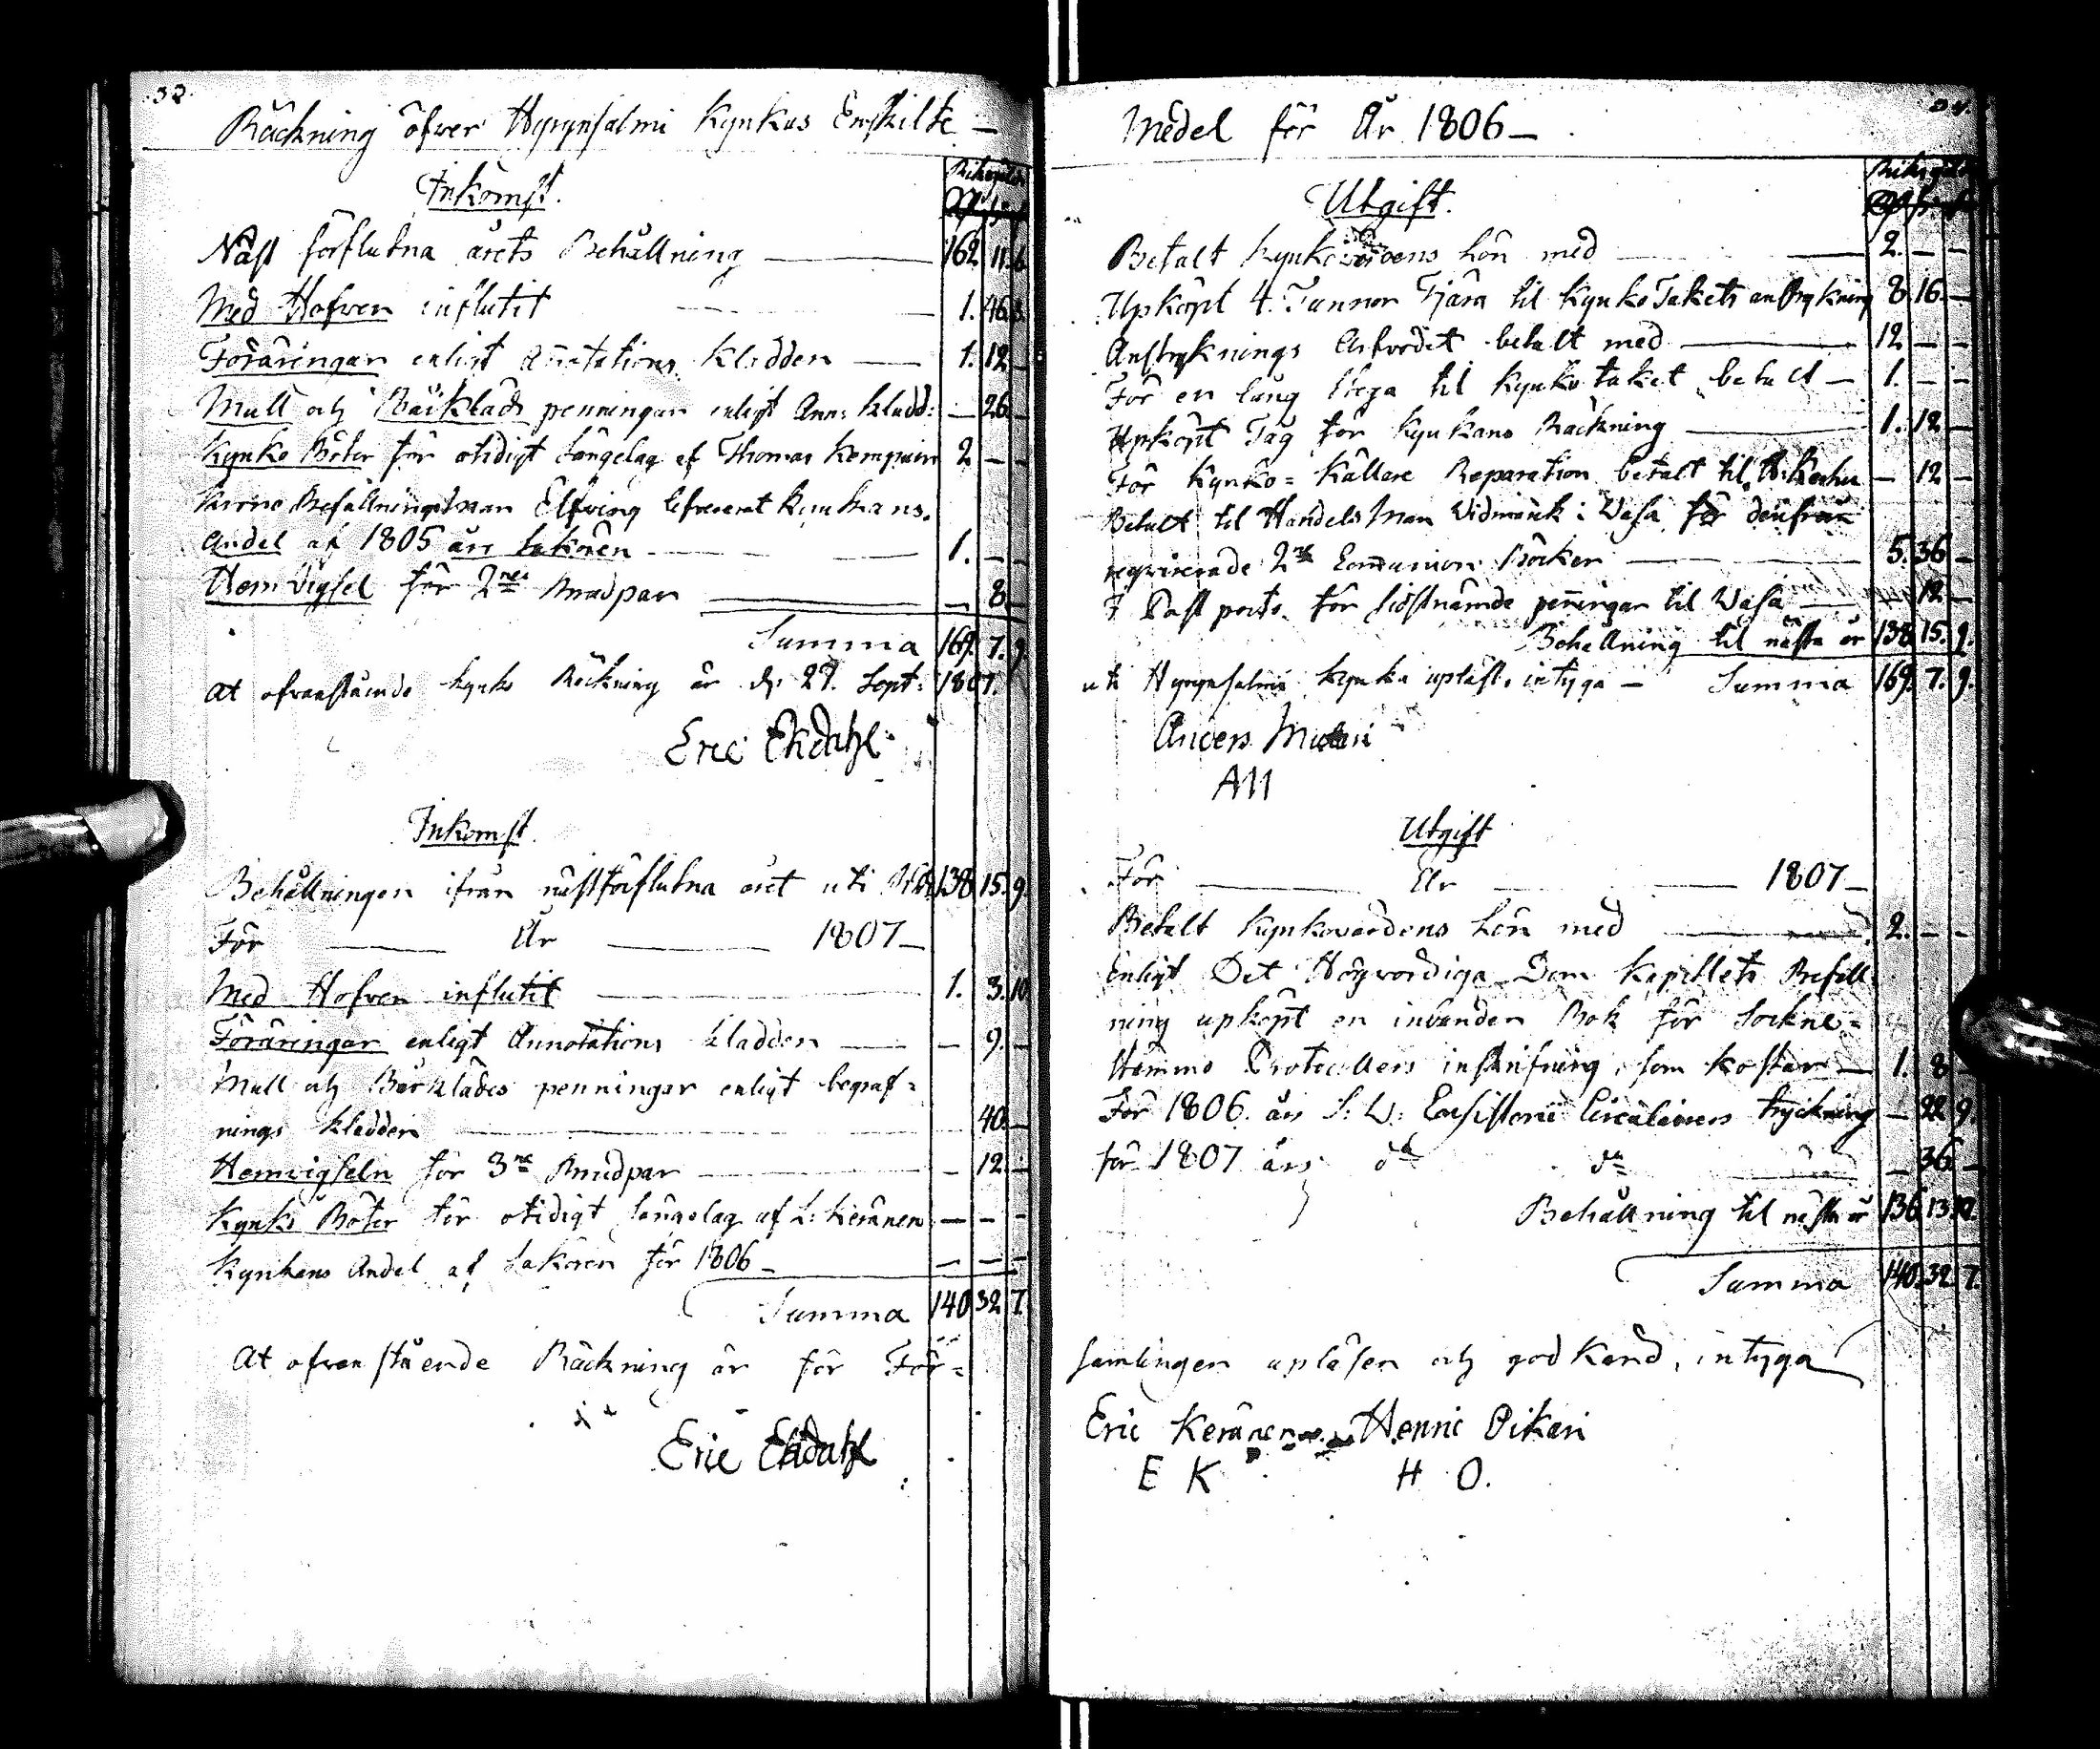 32.
Räckning öfver Hyrynsalmi Kyrkas Enskilte —
Inkomst.
Riksgälds
Näst förflutna årets Behållning — 162. 11. 6.
Med Hofven influtit — 1. 46. 3.
Föräringar enligt Annotations kladden — 1. 12. —
Mull och Bårkläds penningar enligt Ann: kladd: — 26. —
Kyrko Böter för otidigt Sängelag af Thomas Kempain 2 — —
Krono Befallningsman Elfving lefvererat kyrkans
Andel af 1805 års Sakören — 1. — —
Hem Vigsel för 2ne Brudpar — 8. —
Summa 169. 7. 9.
At ofvanstående kyrko Räckning är d. 27. Sept: 1807.
Eric Ekdahl
Inkomst.
Behållningen ifrån nästförflutna året uti 138. 15. 9.
För — År — 1807 —
Med Hofven influtit — 1. 3. 10
Föräringar enligt Annotations kladden — — 9. —
Mull och Bårklädes penningar enligt begraf=
nings kladden — 40. —
Hemvigseln för 3ne Brudpar — — 12. —
Kyrko Böter för otidigt sängelag af L: Keränen — — —
Kyrkans Andel af Sakören för 1806 — — — —
Summa 140 32 7.
At ofvanstående Räckning är för För=
Eric Ekdahl
Medel för År 1806 —
Utgift.
Riksgälds
Betalt Kyrkovärdens Lön med — 2. — —
Upköpt 4. Tunnor Tjära til Kyrko Takets anstrykning 8. 16. —
Anstryknings Arfvodet betalt med — 12 — —
För en lång Stega til Kyrko taket betalt — 1. — —
Upköpt Tåg för Kyrkans Räckning — 1. 12 —
För Kyrko= Källare Reparation betalt til — 12 —
Betalt til Handels Man Widmark i Wasa för derifrån
reqvirerade 2ne Communion Böcker — 5. 36 —
Post porto för sidstnämde penningar til Wasa — — 12 —
Behållning til nästa år 138. 15. 9.
uti Hyrynsalmi Kyrka upläst, intyga — Summa 169. 7. 9.
Anders
AM
Utgift
För — År — 1807 —
Betalt Kyrkovärdens Lön med — 2. — —
Enligt Det Högvördiga Dom Kapitlets Befall
ning upköpt en inbunden Bok för Sockne=
Stämmo Protocollers inskrifning, som kostar — 1. 8 —
För 1806. års S: W: Consistorii Circulairers tryckning — 22 9.
för 1807 års do do — 36. —
Behållning til nästa år 136. 13. 10.
Summa 140. 32. 7.
samlingen upläsen och godkänd, intyga
Eric Keränen Henric Oikari
E K H O.